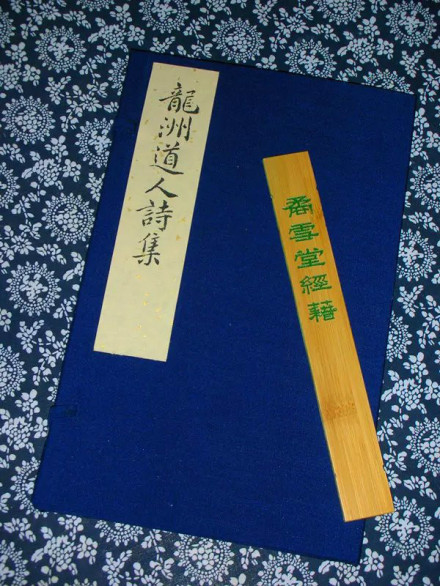 龍洲道人詩集
矞雪堂經籍